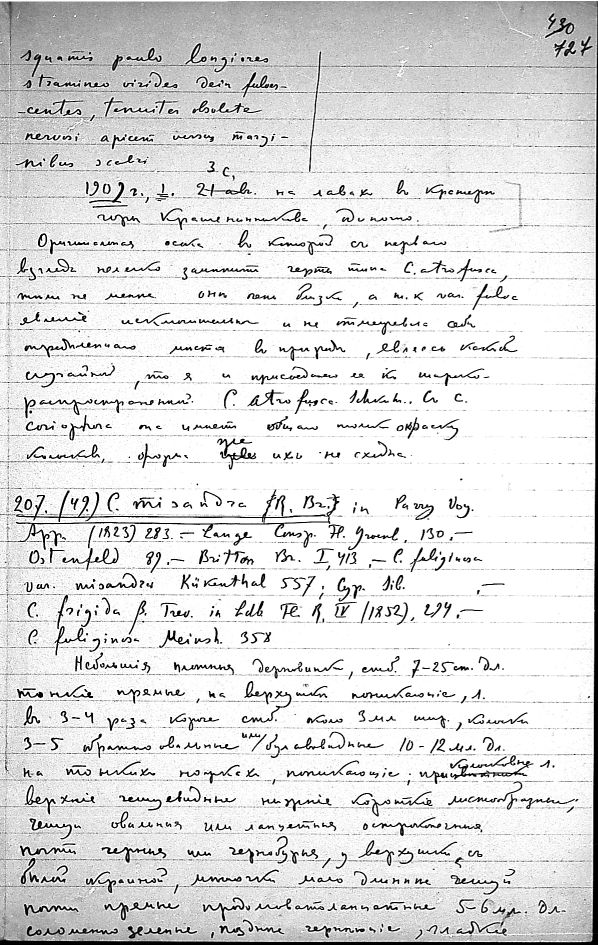 430
727
squamis paulo longiores
stramineo virides dein fulves-
-centes, tenuiter obsolete
nervosi apicem versus margi-
nibus scabri
3. С,
1909 г., 1. 21 авг. на лавах в кратере
горы Крашенинникова, одиного.
Оригинальная осока в которой съ перваго
взгляда нелегко заметить черты типа C. atrofusca,
тѣмъ не менѣе они очень близки, а т.к var. fulva
явленiе исключительн и не отмежевала себѣ
определеннаго места въ природе, являясь какой
случайной, то я и присоединяю ее къ широко-
распространенной C. atrofusca Schkuhr. Съ C.
coriophora она имеетъ общаго только окраску
колосковъ, форма же ихъ не сходна.
207. (49.) C. misandra R. Br. in Parry Voy.
App. (1823) 283. — Lange Consp. Fl. Groenl. 130, —
Ostenfeld 89, — Britton Br. I, 413, — C. fuliginosa
var. misandra Kükenthal 557; Cyp. Sib. ,—
C. frigida β. Trev. in Ldb Fl. R. IV (1852), 294, —
C. fuliginosa Meinsh. 358
Небольшiя плотныя дерновинки, стб. 7-25 cm. дл.
тонкiе прямые, на верхушке поникающiе, л.
въ 3-4 раза короче стб. около 3 мм шир., колоски
3-5 обратно овальные или булавовидные 10-12 мм. дл.
на тонкихъ ножкахъ, поникающiе; колосковые л.
верхнiе чешуевидные нижнiе короткiе листообразные,
чешуи овальныя или ланцетныя остроконечныя
почти черныя или чернобурыя, у верхушки съ
белой окраиной, мешочки мало длиннее чешуй
почти прямые продолговатоланцетные 5-6 мм. дл.
соломенно зеленые, позднее чернеющiе, гладкiе